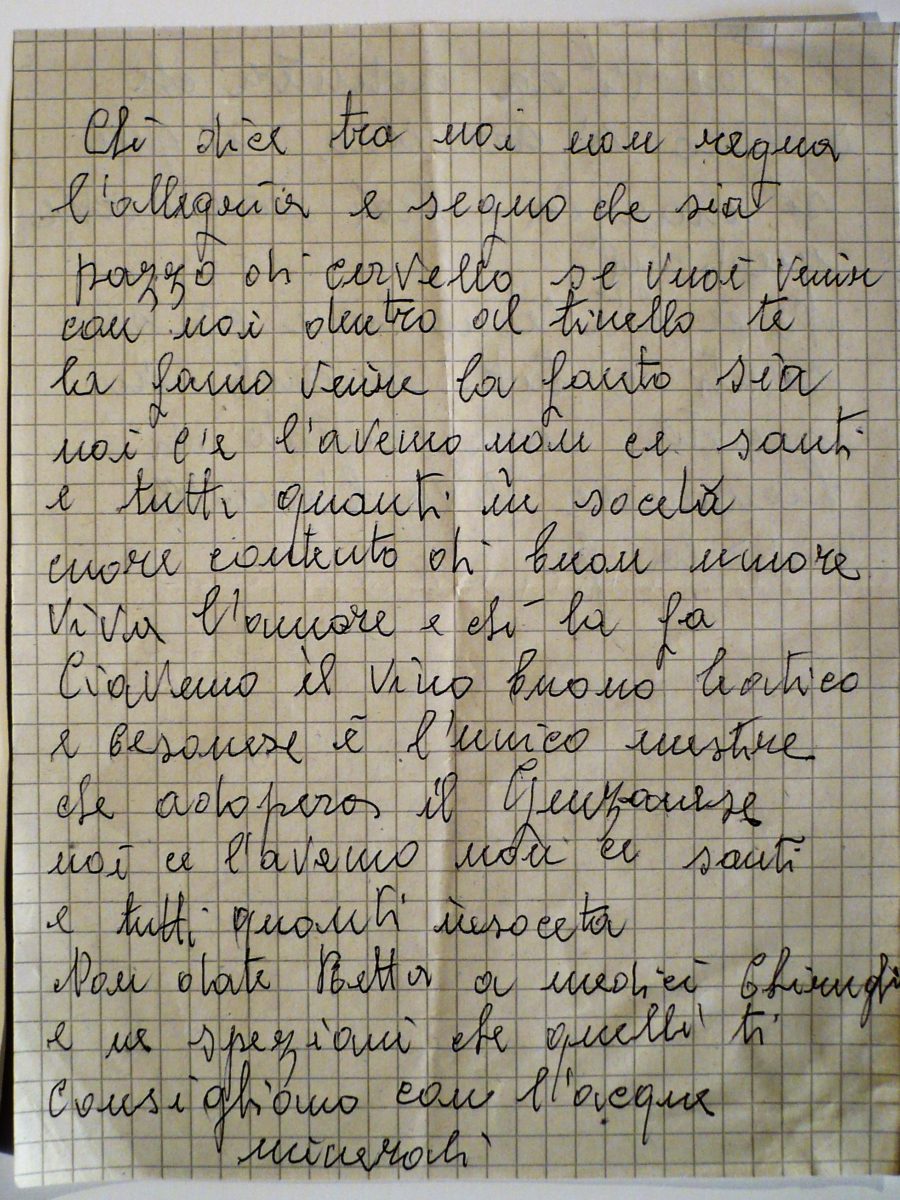 Chi dice tra noi non regna
l'allegria e segno che sia
pazzo di cervello se vuoi venir
con noi dentro al tinello te
la famo venire la fanta sia
noi c'e l'avemo non ce santi
e tutti quanti in soceta
cuore contento di buon umore
Viva l'amore e chi la fa
Ciavemo il vino buono
e è l'unico mestire
che adopera il Genzanese
noi ce l'avemo non ce santi
e tutti quanti insoceta
Non date Retta a medici
e ne speziani che quelli ti
Consigliano con l'acque
minerali